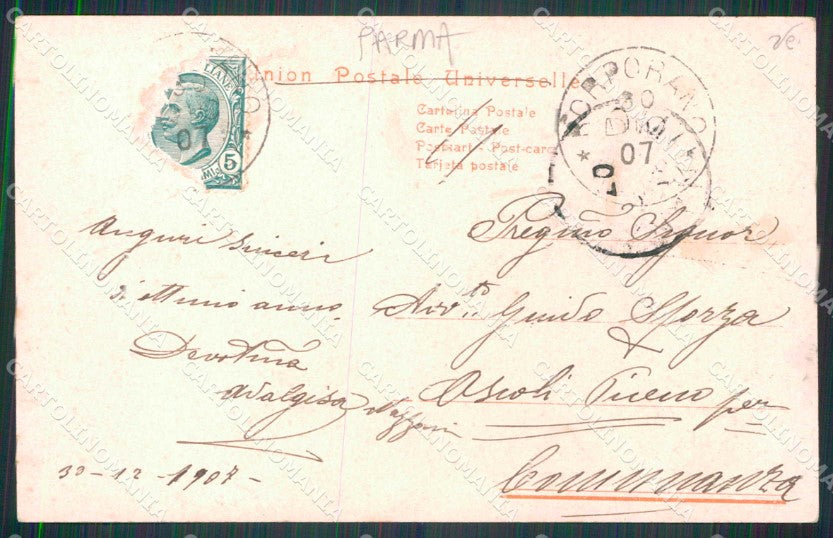 PARMA
Union Postale Universelle
Cartolina Postale
Carte Postale
Postkart - Post-card
Tarjeta postale
5
07
CORPORANO
30
07
Auguri Sinceri
d'ottimo anno.
Devotma
Adalgisa Mazzoni
30-12-1907-
Pregmo Signor
Avvto Guido Sforza
Ascoli Piceno per
Comunanza
CARTOLINOMANIA